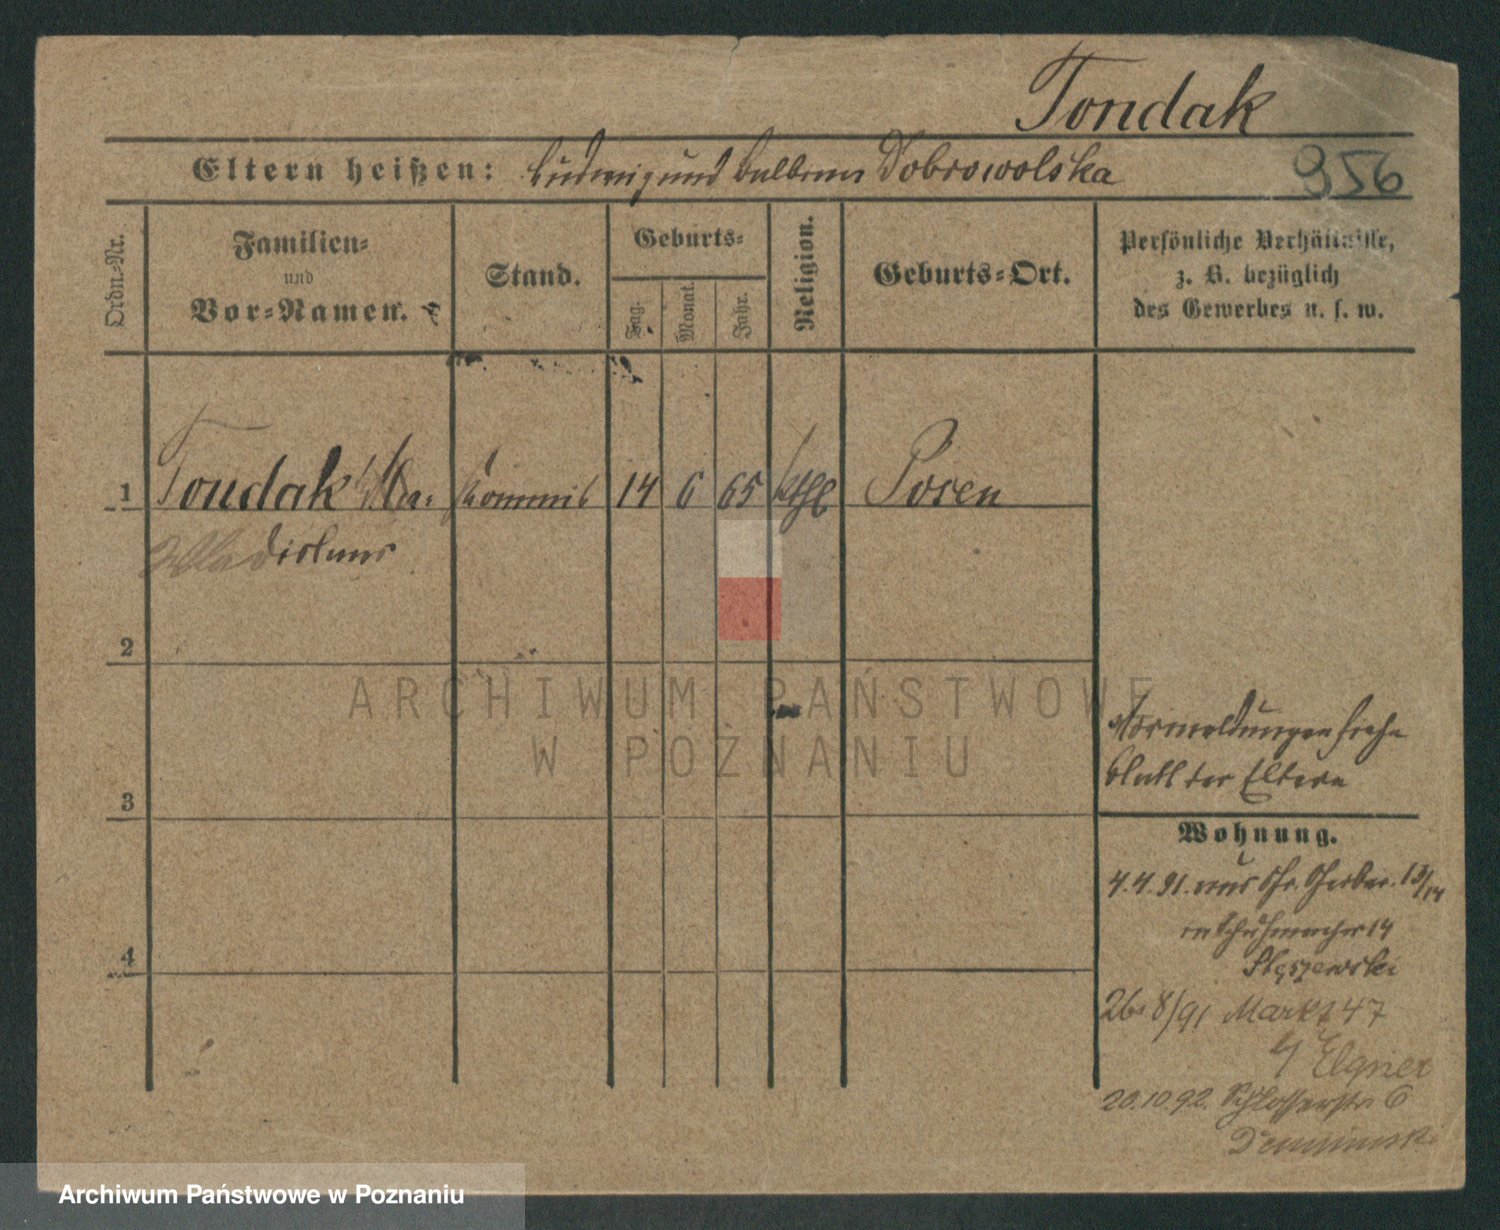 Tondak
Eltern heißen: Ludwig und Balbina Dobrowolska
956
Ordn.=Nr.
Familien=
und
Vor=Namen.
Stand.
Geburts=
Tag.
Monat.
Jahr.
Religion.
Geburts=Ort.
Persönliche Verhältnisse,
z. B. bezüglich
des Gewerbes u. s. w.
1 Tondak Wla= Kommis 14 6 65 kthl Posen
Wladislaus
2
3
4
Vormeldungen siehe
blatt der Eltern
Wohnung.
4.4.91. aus Gr. Gerber. 13/14
n Schuhmacher 14
Stęszewski
26. 8/91 Markt 47
Elgner
20.10.92. Schlosserstr. 6
ARCHIWUM PAŃSTWOWE
W POZNANIU
Archiwum Państwowe w Poznaniu